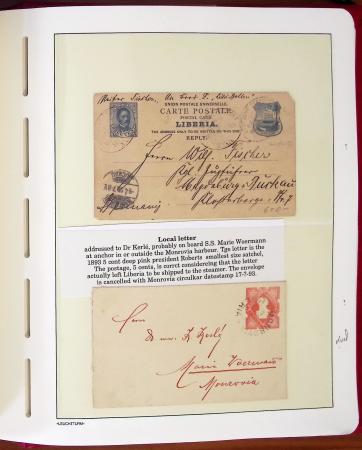 Reiter Tischen, An Bord S. "
UNION POSTALE UNIVERSELLE.
CARTE POSTALE
POSTAL CARD
LIBERIA.
THE ADDRESS ONLY TO BE WRITTEN ON THIS SIDE
REPLY.
Herrn Wilh. Fischer
Kgl. Zugführer
Magdeburg-Buckau
Germany
Local letter
addressed to Dr Kerlé, probably on board S.S. Marie Woermann
at anchor in or outside the Monrovia harbour. Tgs letter is the
1893 5 cent deep pink president Roberts smallest size satchel,
The postage, 5 cents, is corrct considering that the letter
actually left Liberia to be shipped to the steamer. The envelope
is cancelled with Monrovia circulkar datestamp 17-7-93.
Dr.
Marie Woermann
Monrovia
•LEUCHTTURM•